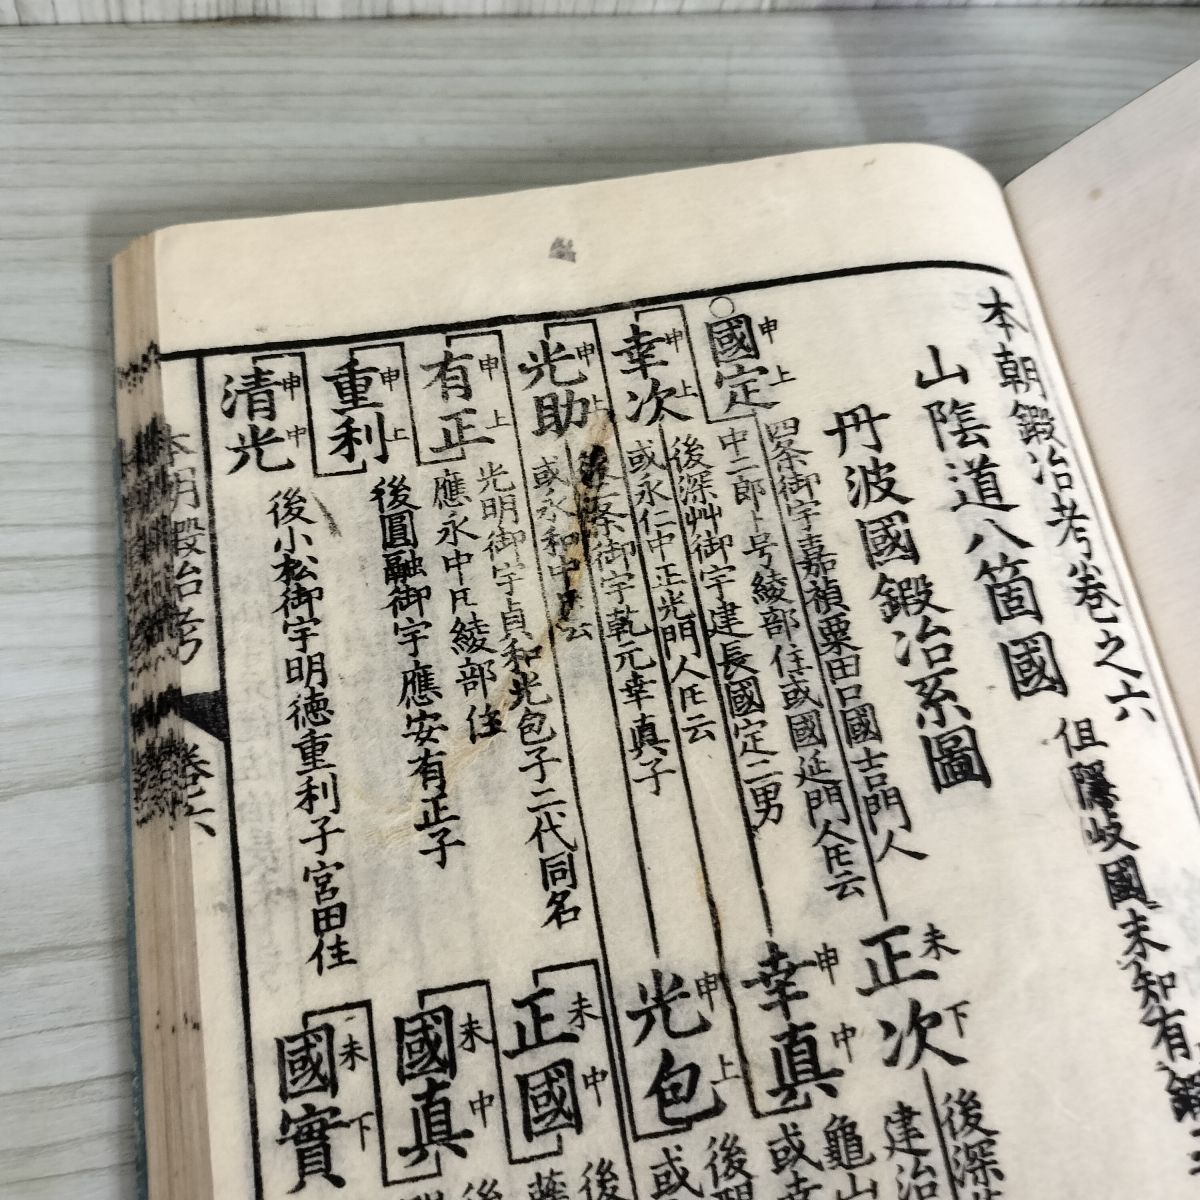 本朝鍛冶考巻之六
山陰道八箇國
但隱岐國未知有鍛
丹波國鍛冶系圖
國定
申上
四条御宇嘉禎粟田口國吉門人
中二郎ト号綾部住或國延門人氏云
正次
未下
後深
建治
幸次
申上
後深艸御宇建長國定二男
或永仁中正光門人氏云
幸真
申中
龜山
或幸
光助
申上
条御宇乾元幸真子
或永和中氏云
光包
申上
後
或
有正
申上
光明御宇貞和光包子二代同名
應永中氏綾部住
正國
未中
後
重利
申上
後圓融御宇應安有正子
國真
未中
後
清光
申中
後小松御宇明徳重利子宮田住
國實
未下
本朝鍛冶考
巻六